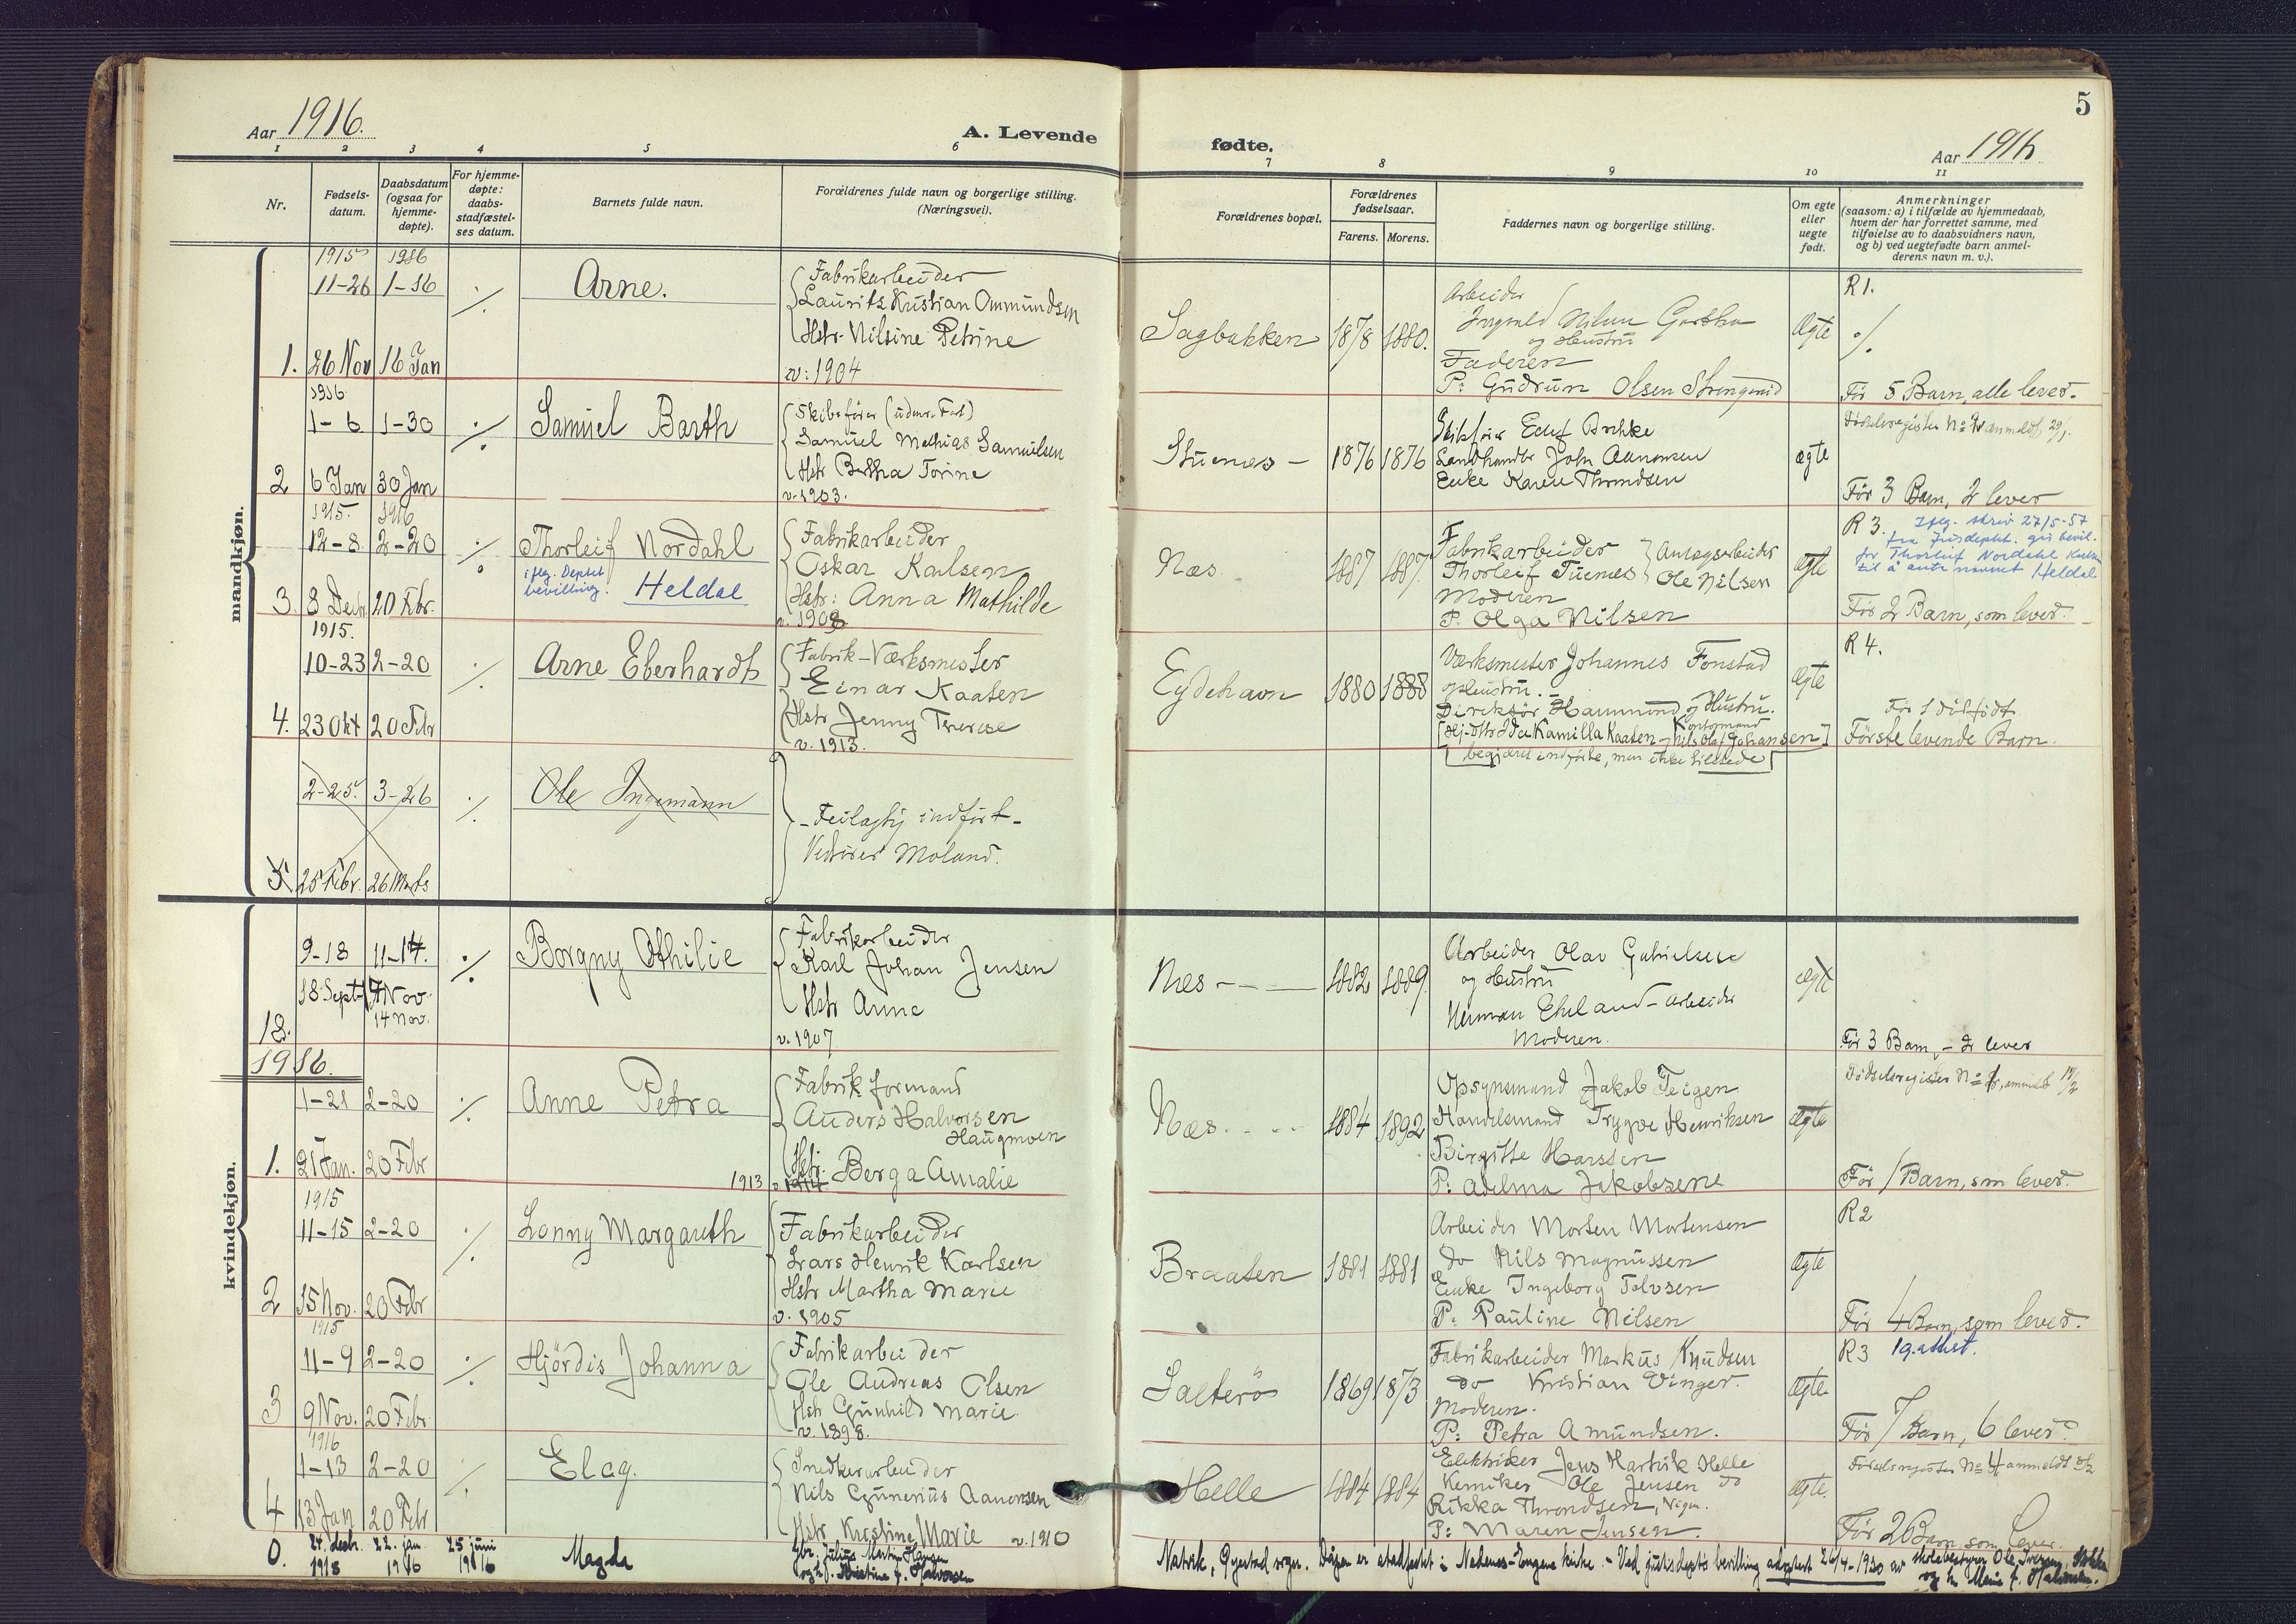 5
Aar 1916.
A. Levende
fødte.
Aar 1916
1 2 3 4 5 6 7 8 9 10 11
Nr.
Fødsels-
datum.
Daabsdatum
(ogsaa for
hjemme-
døpte).
For hjemme-
døpte:
daabs-
stadfæstel-
ses datum.
Barnets fulde navn.
Forældrenes fulde navn og borgerlige stilling.
(Næringsvei).
Forældrenes bopæl.
Forældrenes
fødselsaar.
Farens. Morens.
Faddernes navn og borgerlige stilling.
Om egte
eller
uegte
født.
Anmerkninger
(saasom: a) i tilfælde av hjemmedaab,
hvem der har forrettet samme, med
tilføielse av to daabsvidners navn,
og b) ved uegtefødte barn anmel-
derens navn m. v.).
mandkjøn.
1915 1916
11-26 1-16 ./. Arne.
1. 26 Nov 16 Jan
Fabrikarbeider
Laurits Kristian Ommundsen
Hstr. Nilsine Petrine
v: 1904
Sagbakken 1878 1880.
Arbeider
og Hustru
Faderen
P: Gudrun Olsen Strengereid
Ægte
R 1.
./.
Før 5 Barn, alle lever.
1916
1-6 1-30 ./. Samuel Barth
2 6 Jan 30 Jan
Skibsfører (udenr. Fart)
Samuel Mathias Samuelsen
Hstr Bertha Torine
v. 1903.
Stuenes - 1876 1876
Landhandler John Aanonsen
Enke Karen Throndsen
ægte
Fødselsregister No 2 anmeldt 29/1.
Før 3 Barn, 2 lever
1915. 1916
12-8 2-20 ./. Thorleif Nordahl
iflg. Deptet
bevilling. Heldal
3. 8 Decbr 20 Febr.
Fabrikarbeider
Oskar Karlsen
Hstr: Anna Mathilde
v. 1908
Næs. 1887 1887.
Fabrikarbeider
Thorleif Tuenes
Anlægsarbeider
Ole Nilsen
Moderen
P. Olga Nilsen
Ægte
R 3. Iflg. skriv 27/5-57
fra Jusdeptet. gis bevil.
for Thorleif Nordahl
til å anta navnet Heldal
Før 2 Barn, som lever.
1915.
10-23 2-20 ./. Arne Eberhardt
4. 23 Okt 20 Febr
Fabrik-Værksmester
Einar Kaaten
Hstr Jenny Therese
v. 1913.
Eydehavn 1880 1888
Værksmester Johannes Fonstad
og Hustru. -
Direktør Hammond og Hustru.
Kamilla Kaaten - Kontormand Nils Olaf Johansen]
[begjæret indførte, men ikke tilstede]
Ægte
R 4.
Før 1 dødfødt
Første levende Barn.
2-25. 3-26 ./. Ole Ingemann
5. 25 Febr. 26 Marts
- Feilagtig indført -
Vedrører Moland.
kvindekjøn.
9-18 11-14. ./. Borgny Othilie
18 Sept 14 Nov.
14 Nov.
18.
Fabrikarbeider
Karl Johan Jensen
Hstr Anne
v. 1907
Næs - 1882 1889.
Arbeider Olav Gabrielsen
og Hustru
Herman Ekeland - Arbeider
Moderen.
ægte
Før 3 Barn, - 2 lever
1916.
1-21 2-20 ./. Anne Petra
1. 21 Jan. 20 Febr
Fabrikformand
Anders Halvorsen
Haugmoen
Hstr. Berga Amalie
1913 v. 1914
Næs. 1884 1892
Opsynsmand Jakob Teigen
Handelsmand Trygve Henriksen
Birgitte Harssen
P: Adelma Jakobsene
Ægte
Før 1 Barn, som lever.
1915
11-15 2-20 ./. Lonny Margareth
2 15 Nov. 20 Febr
Fabrikarbeider
Lars Henrik Karlsen
Hstr Martha Marie
v. 1905
Braaten 1881 1881
Arbeider Morten Mortensen
do Nils Magnussen
Enke Ingeborg Tolvsen
P: Pauline Nilsen
Ægte
R 2
Før 4 Barn, som lever.
1915
11-9 2-20 ./. Hjördis Johanna
3 9 Nov. 20 Febr.
Fabrikarbeider
Ole Andreas Olsen
Hstr Gunhild Marie.
v. 1898.
Salterö 1869 1873
Fabrikarbeider Markus Knudsen
do Kristian Vinger.
Moderen.
P: Petra Amundsen.
Ægte.
R 3 1g. attest.
Før 7 Barn, 6 lever.
1916
1-13 2-20 ./. Elag.
4 13 Jan 20 Febr
Snedkerarbeider
Nils Gunerius Aanonsen
Hstr Kristine Marie v. 1910
Helle 1884 1884
Elektriker Jens Hartvik Helle
Kemiker Ole Jensen do
Rikka Throndsen,
P: Maren Jensen.
ægte.
Fødselsregister No 4 anmeldt
Før 2 Barn som lever.
0. 24. desbr. 1915 22. jan 1916 25 juni 1916 Magda
Julius Martin Hansen
og h. Kristine f. Halvorsen
Natvik, Øyestad sogn. Dåpen er stadfestet i Nedenes-Engene kirke. - Ved justisdepts bevilling adoptert 26/4-1920 av skolebestyrer Ole
og h. Marie f. Halvorsen.